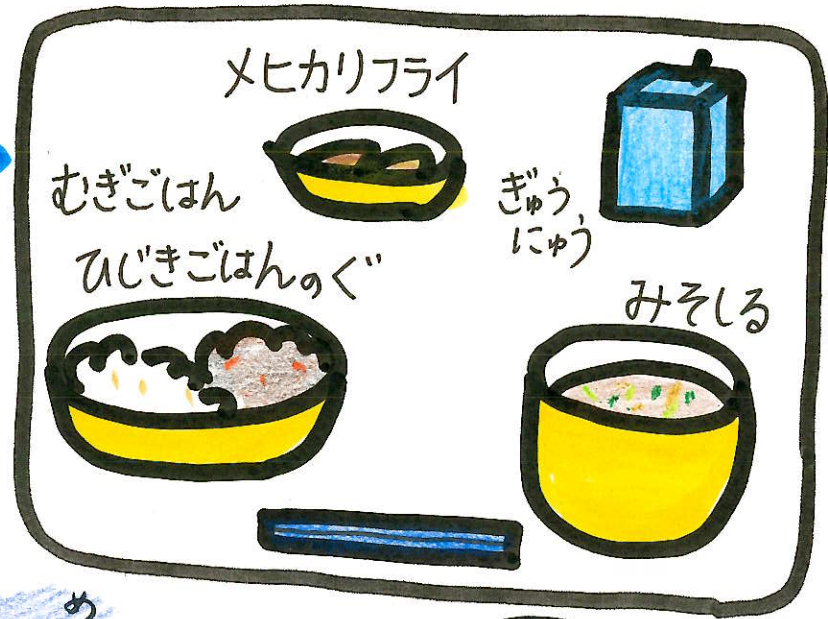 メヒカリフライ
むぎごはん
ひじきごはんのぐ
ぎゅう
にゅう
みそしる
め